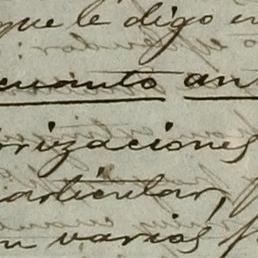 que le digo en
cuanto an
rizaciones
articular,
n varios f